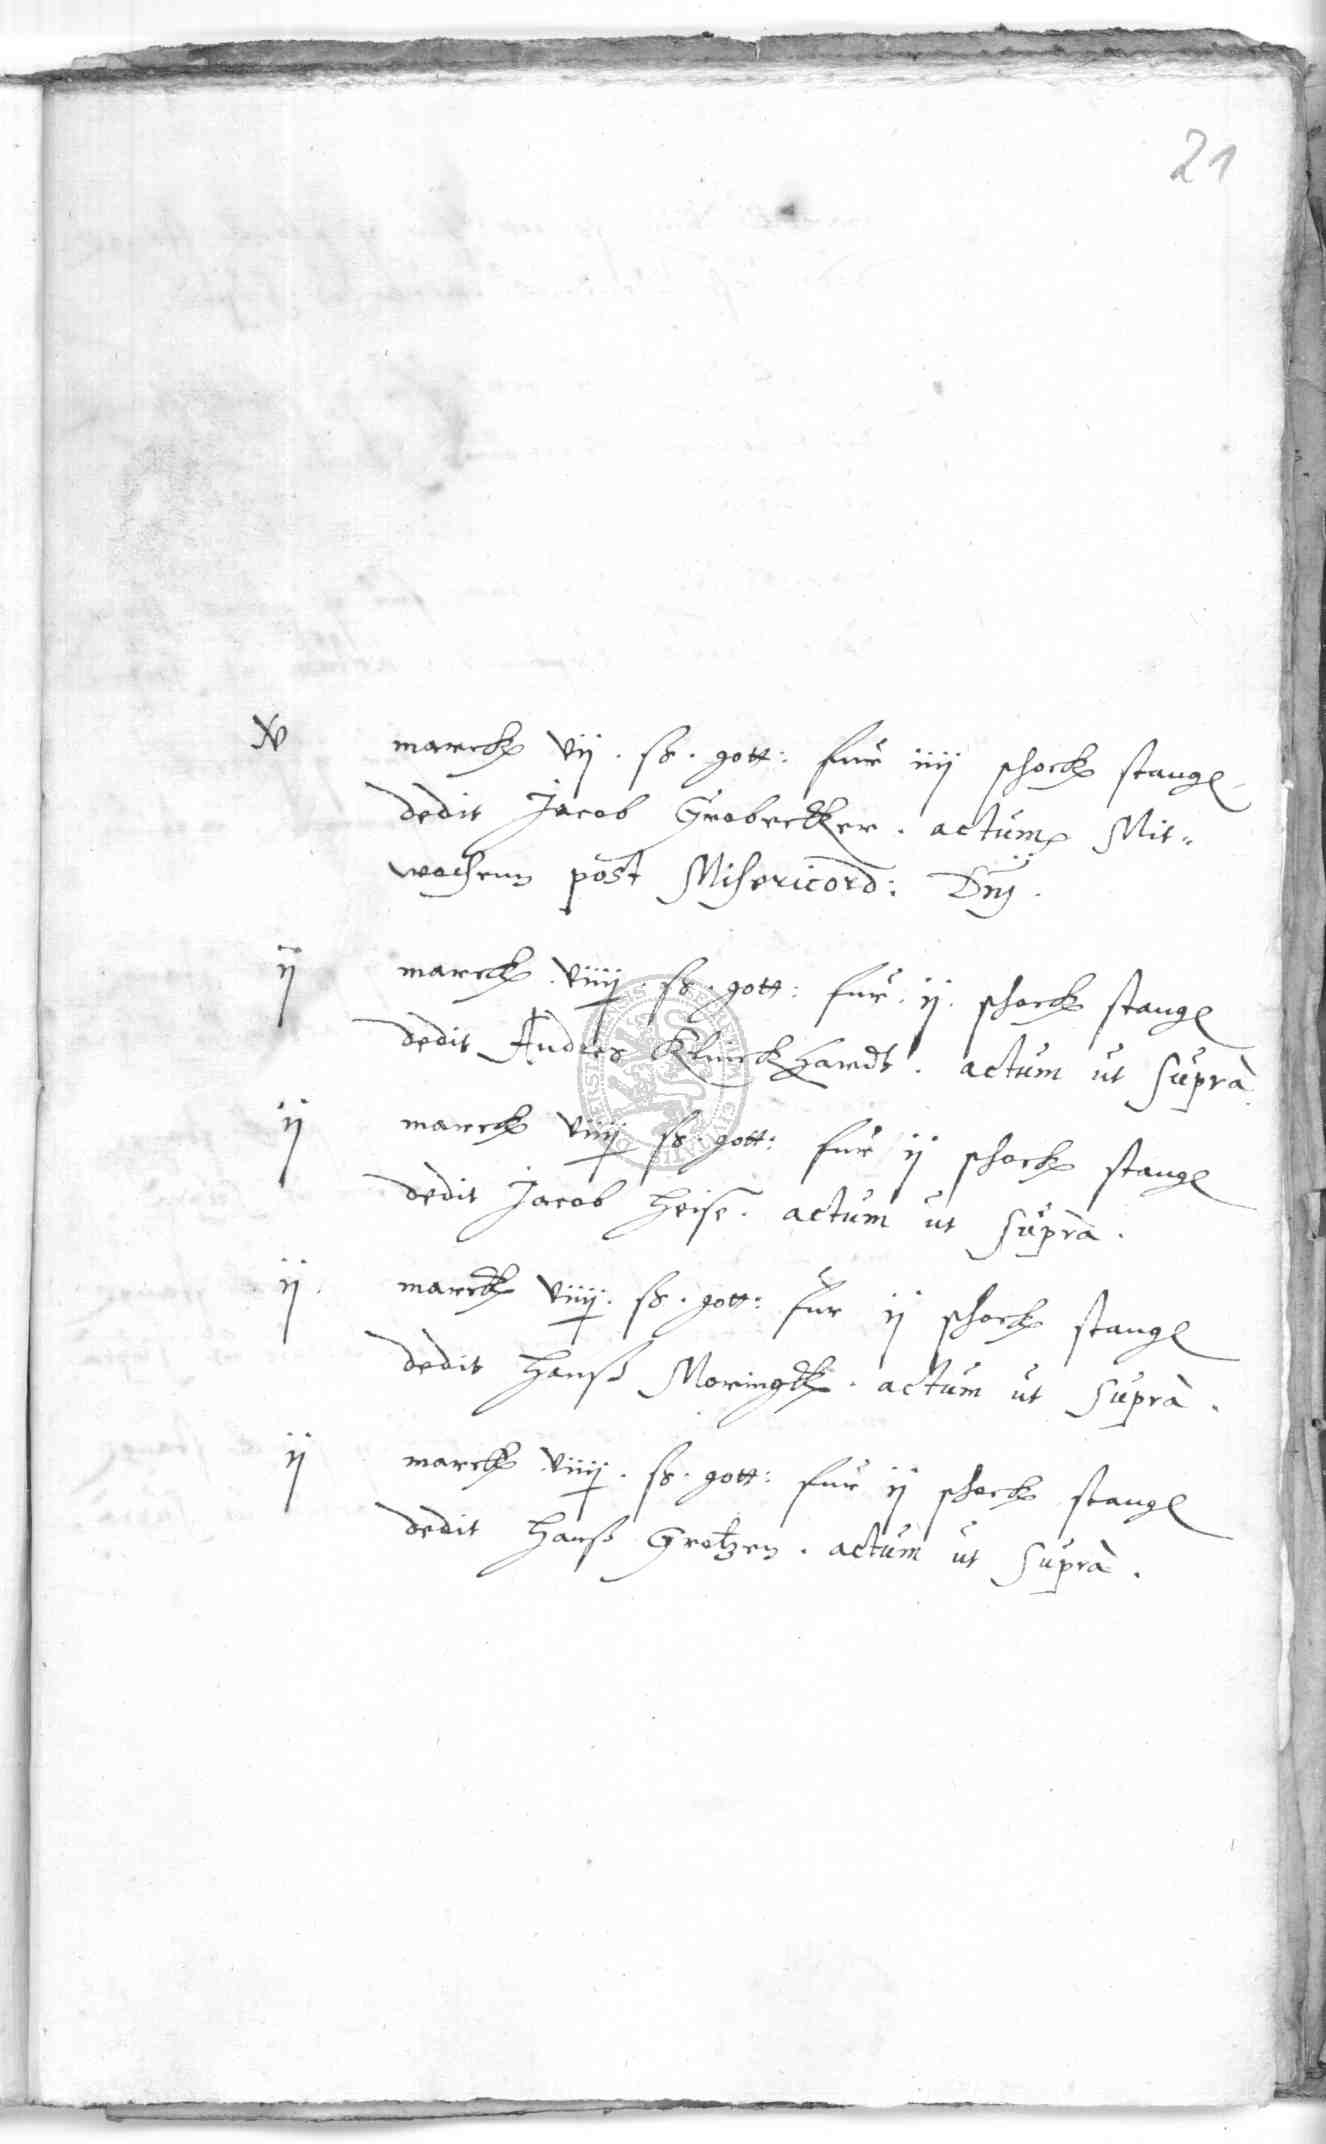 21
xv marck vij . ß . gott: fur iiij schock stang
dedit Jacob Grobecker . actum Mit-
wochenn post Misericord: Dnj .
ij marck . viiij . ß . gott: fur . ij . schock stang
dedit Andres Klinckhardt . actum ut supra
ij marck viiij ß . gott: fur ij schock stang
dedit Jacob Heise . actum ut supra .
ij marck viiij . ß . gott: fur ij schock stang
dedit Hanß Moringk . actum ut supra .
ij marck viiij . ß . gott: fur ij schock stang
dedit Hanß Gretzen . actum ut supra .